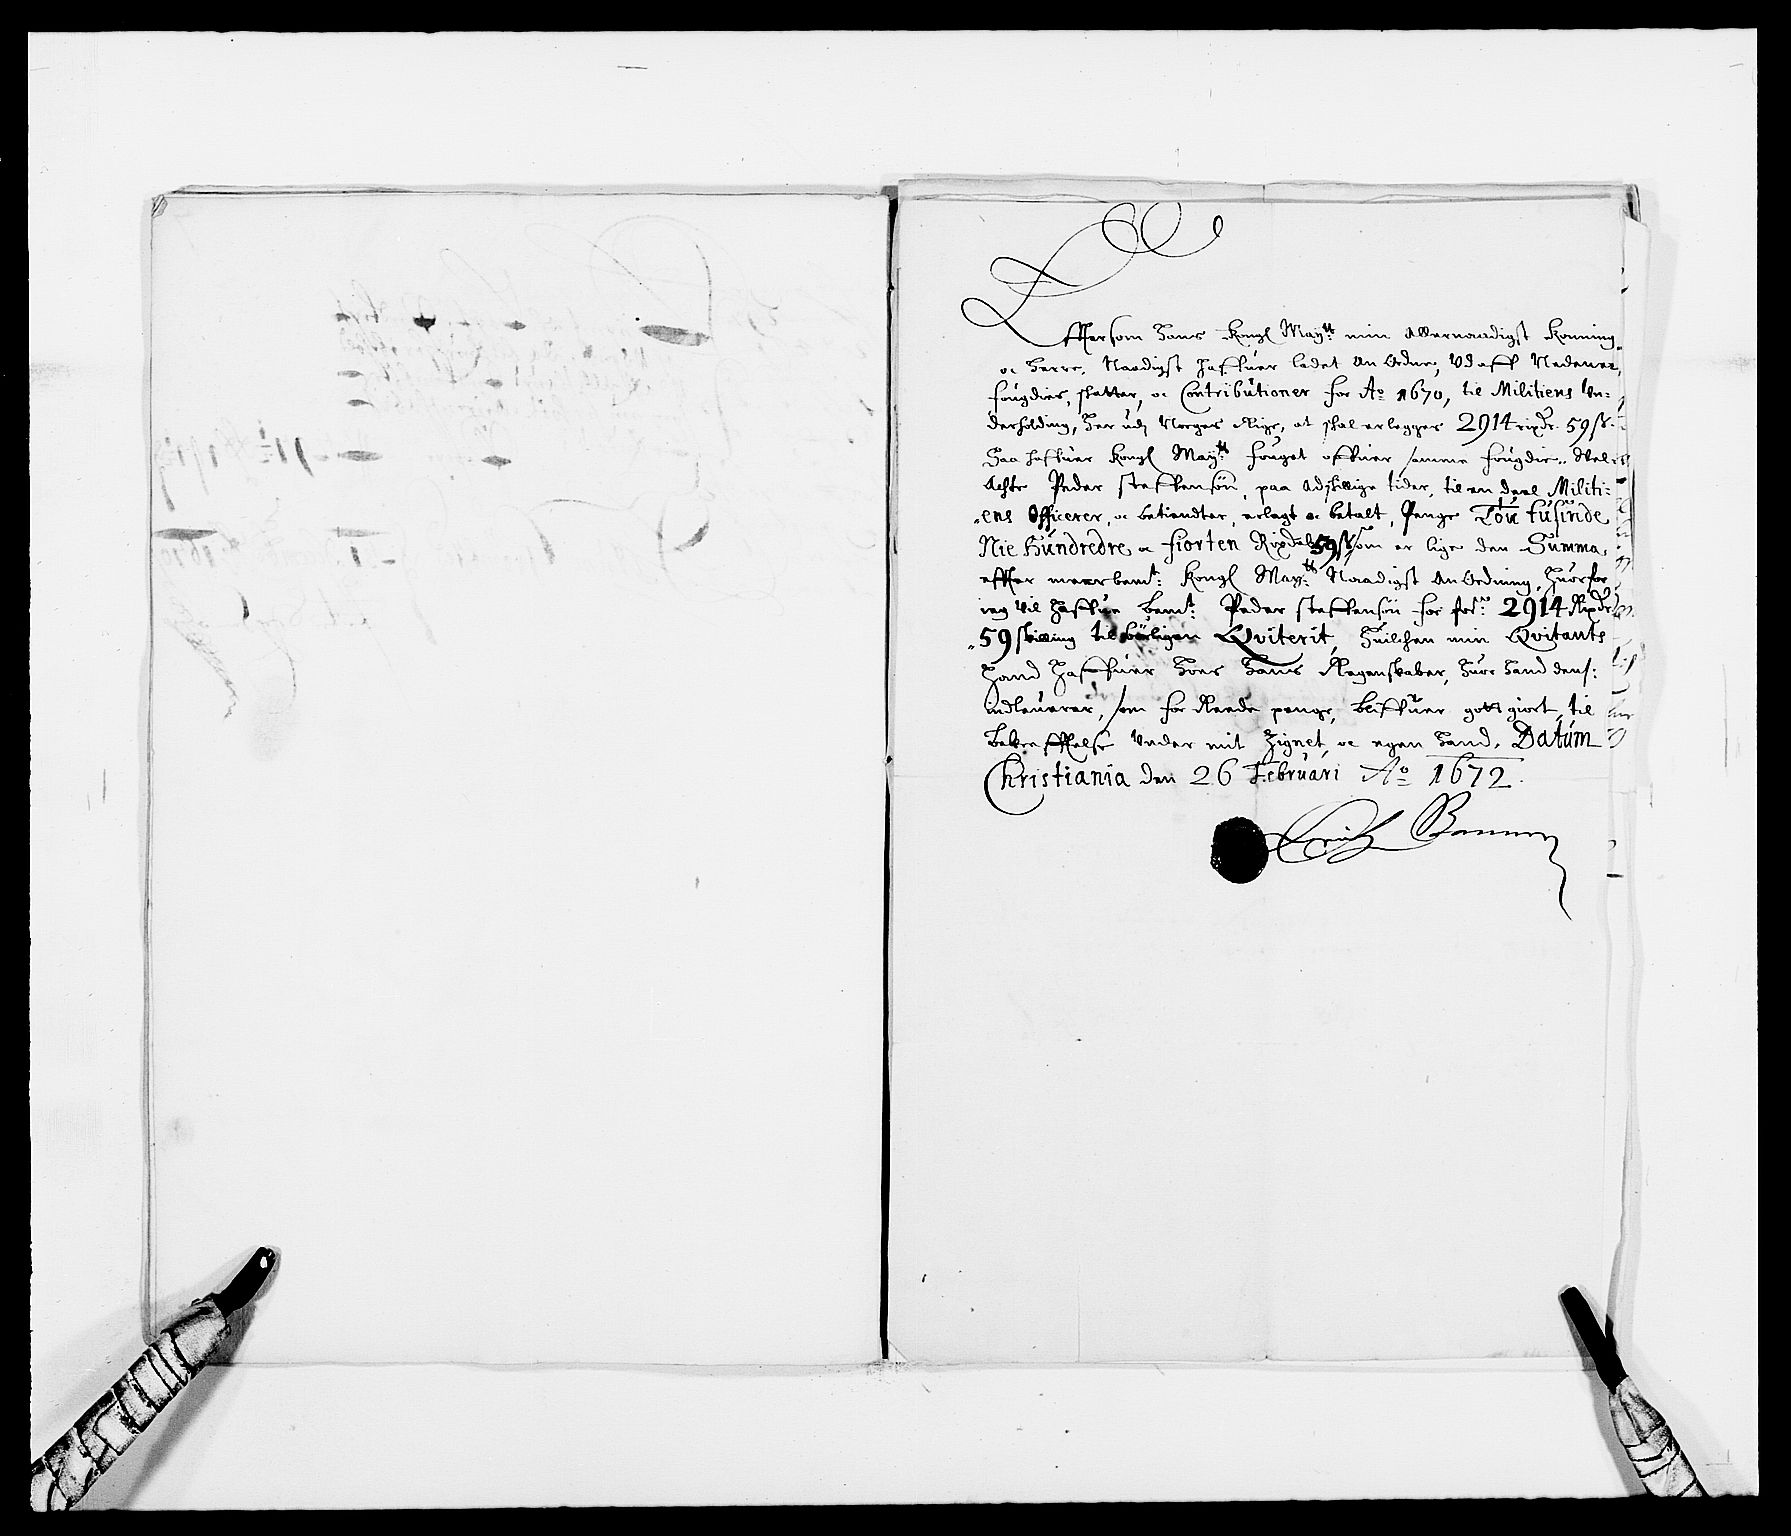 Efftersom Hans Kongl May:tt min Allernaadigst Konning
oc Herre, Naadigst haffuer ladet An Ordne, Vdaff Nedenes
fougdies, skatter, oc Contributioner for A:o 1670, til Militiens Un:
derholding, Her udj Norges Rige, at skal erlegges 2914 rixdr. 59 ß.
Saa haffuer Kongl May:tt fouget offuer samme fougdie, Vel
Achte Peder Steffensøn, paa Adskillige tider, til en deel Militi:
ens Officerer, oc betiendter, erlagt oc betalt, Penge Tou tusinde
Nie Hundredre oc fiorten Rixdal 59 ß som er lige den Summa,
effter meerbem:t Kongl May:tt Naadigst An Ordning, Huorfor
ieg vil haffue bem:t Peder Steffensøn for for:ne 2914 Rixdr
59 skilling tilbørligen Qviterit, Huilchen min Qvitants
Hand haffuer Hoes Hans Regenskaber, Huor Hand dens:
indleuerer, som for Reede penge, bliffuer gott giort, til
bekrefftelse Under mit Zignet, oc egen Hand, Datum
Christiania den 26 Februari A:o 1672.
Erich Banner